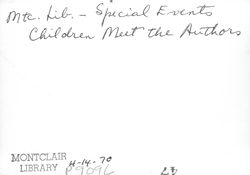 Mtc. Lib. - Special Events
Children Meet the Authors
MONTCLAIR
LIBRARY
4-14-70
P909C